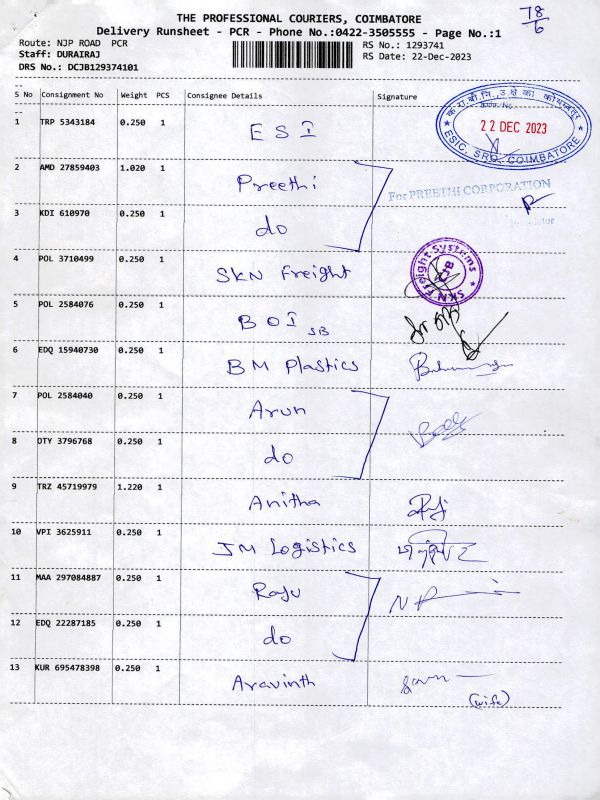 78
6
THE PROFESSIONAL COURIERS, COIMBATORE
Delivery Runsheet - PCR - Phone No.:0422-3505555 - Page No.:1
Route: NJP ROAD PCR
RS No.: 1293741
Staff: DURAIRAJ
RS Date: 22-Dec-2023
DRS No.: DCJB129374101
S No Consignment No Weight PCS Consignee Details Signature
22 DEC 2023
ESIC, SRO, COIMBATORE
1 TRP 5343184 0.250 1 ESI
2 AMD 27859403 1.020 1 Preethi
For PREETHI CORPORATION
3 KDI 610970 0.250 1 do
4 POL 3710499 0.250 1 SKN Freight
SKN Freight Systems
CJB
5 POL 2584076 0.250 1 BOI SB
6 EDQ 15940730 0.250 1 BM Plastics
7 POL 2584040 0.250 1 Arun
8 OTY 3796768 0.250 1 do
9 TRZ 45719979 1.220 1 Anitha
10 VPI 3625911 0.250 1 JM Logistics
11 MAA 297084887 0.250 1 Raju
12 EDQ 22287185 0.250 1 do
13 KUR 695478398 0.250 1 Aravinth
(wife)